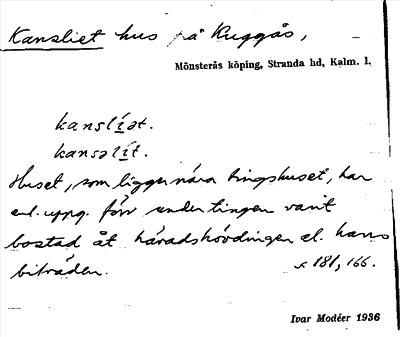 Kansliet hus på Ruggås,
Mönsterås köping, Stranda hd, Kalm. l.
kanslíət.
kansəlít.
Huset, som ligger nära tingshuset, har
enl. uppg. förr under tingen varit
bostad åt häradshövdingen el. hans
biträden.
181, 166.
Ivar Modéer 1936